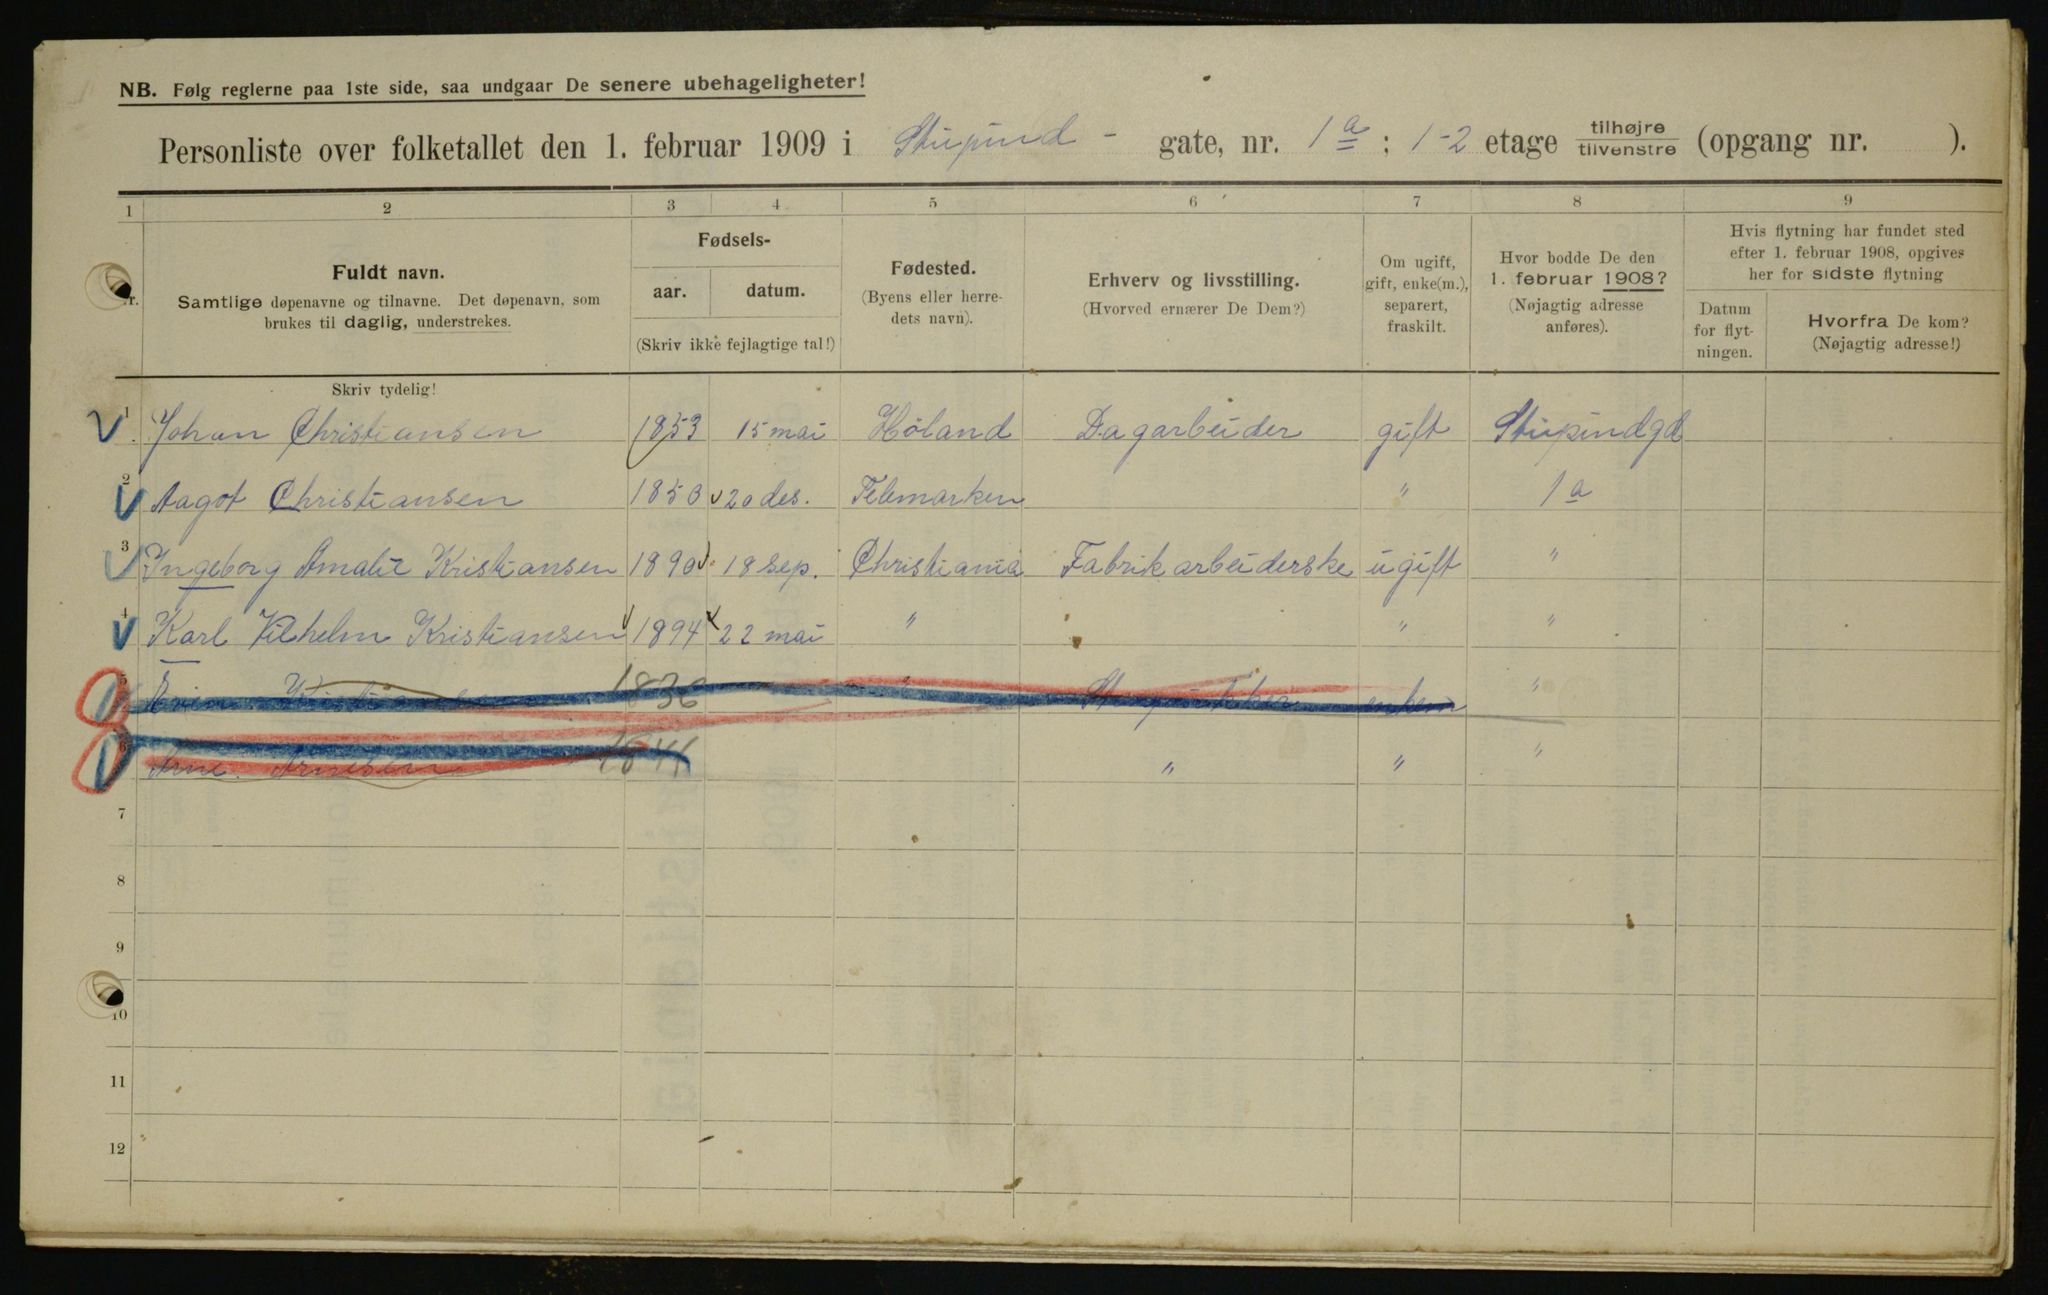 NB. Følg reglerne paa 1ste side, saa undgaar De senere ubehageligheter!
Personliste over folketallet den 1. februar 1909 i Stupind - gate, nr. 1 a : 1-2 etage tilhøjre tilvenstre (opgang nr. ).
1 2 3 4 5 6 7 8 9
Fuldt navn.
Samtlige døpenavne og tilnavne. Det døpenavn, som
brukes til daglig, understrekes.
Fødsels-
aar. datum.
(Skriv ikke fejlagtige tal!)
Fødested.
(Byens eller herre-
dets navn).
Erhverv og livsstilling.
(Hvorved ernærer De Dem?)
Om ugift,
gift, enke(m.),
separert,
fraskilt.
Hvor bodde De den
1. februar 1908?
(Nøjagtig adresse
anføres).
Hvis flytning har fundet sted
efter 1. februar 1908, opgives
her for sidste flytning
Datum
for flyt-
ningen.
Hvorfra De kom?
(Nøjagtig adresse!)
Skriv tydelig!
1 Johan Christiansen 1853 15 mai Høland Dagarbeider gift Stupindgd
2 Aagot Christiansen 1850 20 des. Telemarken " 1 a
3 Ingeborg Amalie Kristiansen 1890 18 sep. Christiania Fabrikarbeiderske ugift "
4 Karl Vilhelm Kristiansen 1894 22 mai " " "
5 1836 " enkem "
6 Arne Arnesen 1841 " " "
7
8
9
10
11
12